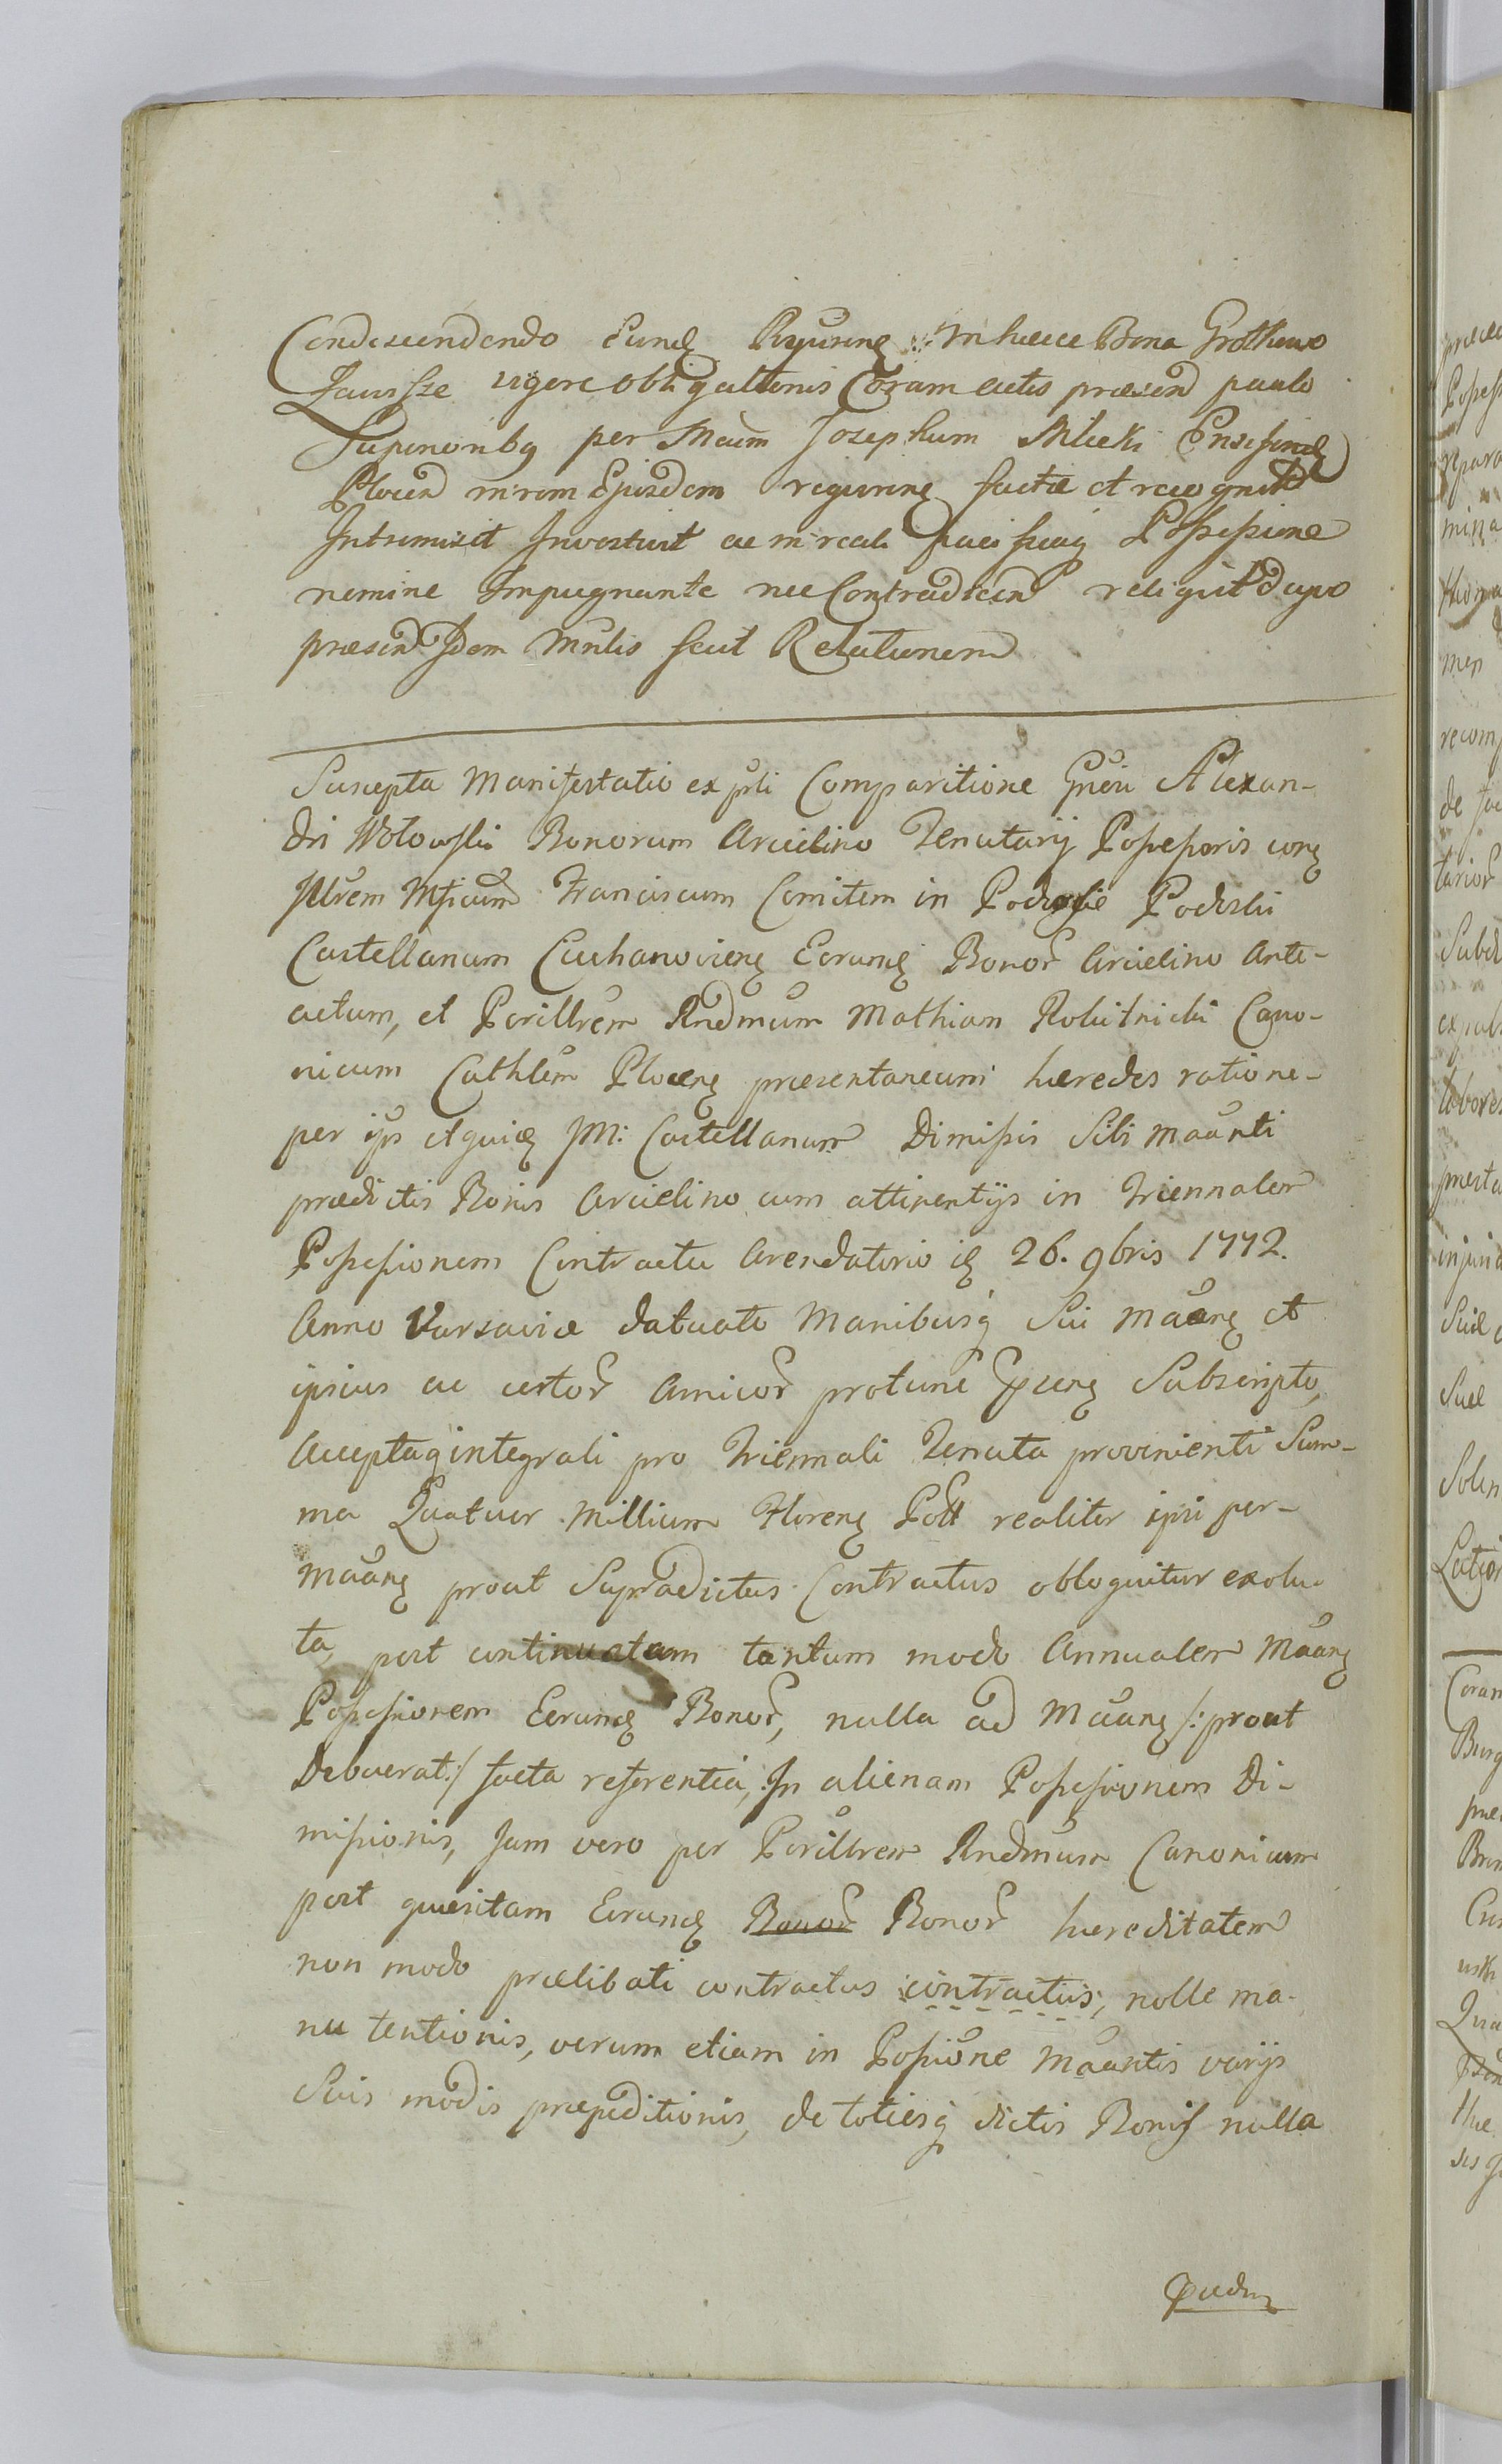 Condescendendo Eund Requirens in haece Bona Grotkowo
Zawisze vigore obligationis Coram actis praesen paulo
Superioribq per Mcum Josephum Mlicki Ensiferid
Plocen in rem Ejusdem requirens factae et recognit
Intromisit Investivit ac in reali pacificaq Possessione
nemine Impugnante nec Contradicen reliquit de quo
praesen Idem Mnlis fecit Relationem
Suscepta Manifestatio ex prli Comparitione Gnesi Alexan-
dri Wołowski Bonorum Arcielino Tenutarij Possessoris corq
Jllrem Mficum Franciscum Comitem in Podosie Podoski
Castellanum Ciechanovienq Eorundq Bonor Arcielino Ante-
actum, et Perillrem Rndmum Mathiam Robitnicki Cano-
nicum Cathlem Plocenq praesentaneum haeredes ratione
per ips et quidq JM: Castellanum Dimissis Sibi Maanti
praedictis Bonis Arcielino cum attinentijs in Triennalem
Possessionem Contractu Arendatorio iq 26. 9bris 1772.
Anno Varsaviae datuato Manibusq Sui Maanq et
ipsius ac certor Amicor protunc Psenq Subscripto,
Acceptaq integrali pro Triennali Tenuta provinienti Sum-
ma Quatuor Millium Florenq Poll realiter ipsi per
Maanq prout Supradictus Contractus obloquitur exolu-
ta, post continuatam tantum modo Annualem Maanq
Possessionem Eorundq Bonor, nulla ad Maanq /: prout
Debuerat:/ facta referentia, In alienam Possessionem Di-
missionis, Jam vero per Perillrem Rndmum Canonicum
post quaesitam Eorundq Bonor Bonor haereditatem
non modo praelibati contractus contractus, nolle ma-
nu tentionis, verum etiam in Possione Maantis varijs
Suis modis praepeditionis, de totiesq dictis Bonis nulla